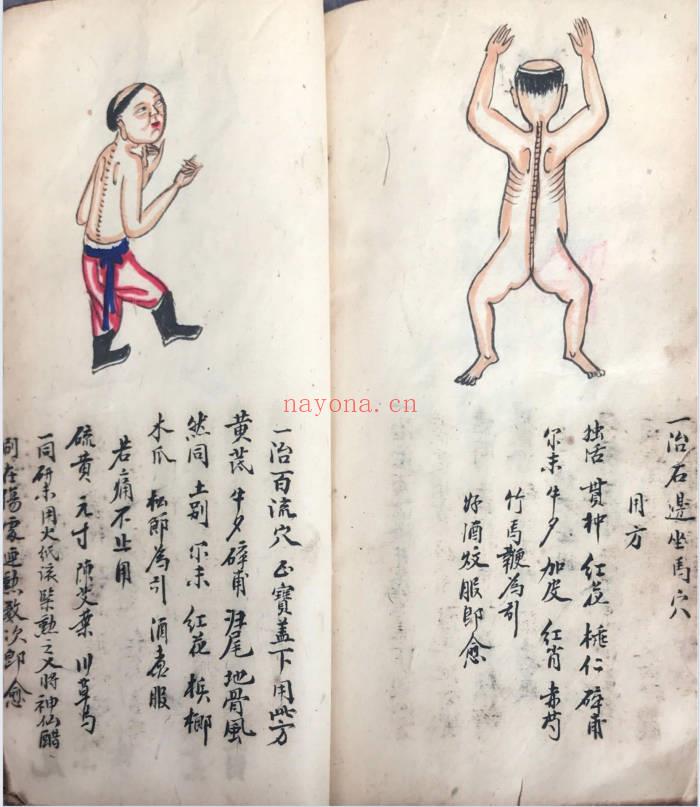 一治石邊坐馬穴
用方
独活 貫种 紅花 桃仁 碎甫
尔末 牛夕 加皮 紅肖 赤芍
竹馬鞭為引
好酒炆服即愈
一治百流穴 正寶蓋下 用此方
黄芪 牛夕 碎甫 归尾 地骨風
然同 土别 尔末 紅花 梹榔
木瓜 松郎為引 酒煮服
若痛不止用
硫黄 元寸 陳艾葉 川草乌
一同研末用火纸滚 勲之又將神仙醋
在傷處連勲数次即愈
nayona.cn